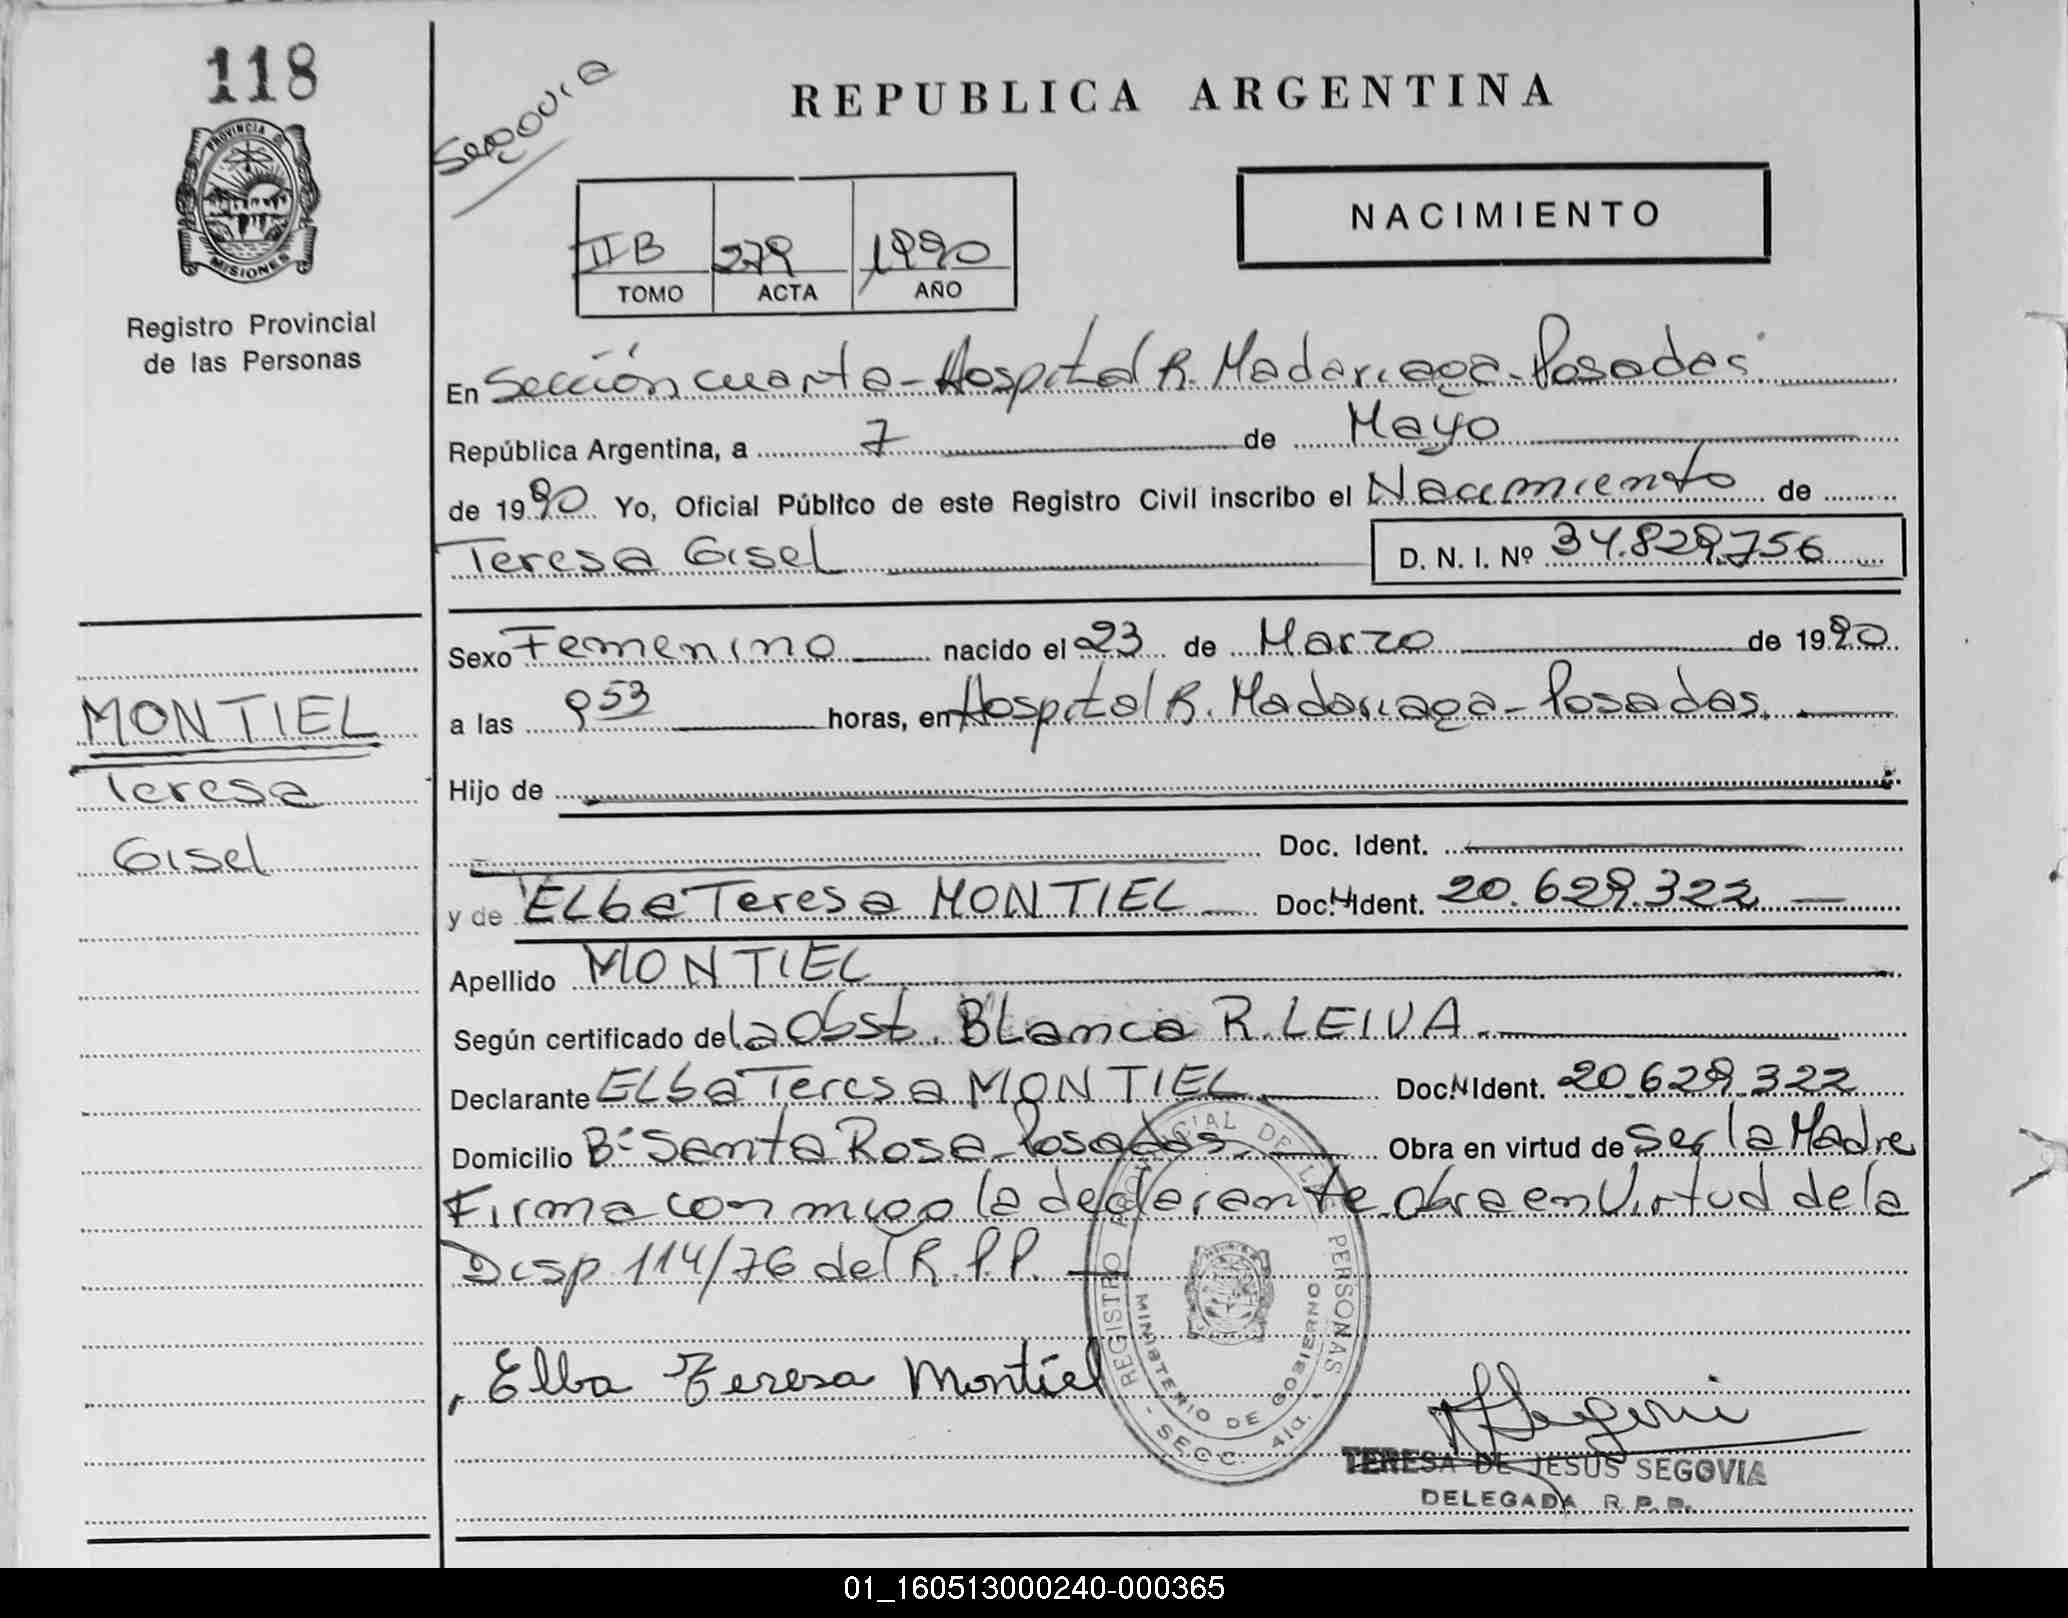 118
PROVINCIA DE
MISIONES
Registro Provincial
de las Personas
MONTIEL
Teresa
Gisel
Segovia
REPUBLICA ARGENTINA
NACIMIENTO
II B 279 1990
TOMO ACTA AÑO
En Sección cuarta - Hospital R. Madariaga - Posadas
República Argentina, a 7 de Mayo
de 1990 Yo, Oficial Público de este Registro Civil inscribo el Nacimiento de
Teresa Gisel D. N. I. Nº 34.829.756
Sexo Femenino nacido el 23 de Marzo de 1990
a las 9 53 horas, en Hospital R. Madariaga - Posadas.
Hijo de
Doc. Ident.
y de ELba Teresa MONTIEL Doc. N Ident. 20.629.322
Apellido MONTIEL
Según certificado de la Obst. BLanca R. LEIVA.
Declarante ELba Teresa MONTIEL Doc. N Ident. 20.629.322
Domicilio Bº Santa Rosa - Posadas. Obra en virtud de Ser la Madre
Firma conmigo la declarante. Obra en Virtud de la
Disp 114/76 del R.P.P.
REGISTRO PROVINCIAL DE LAS PERSONAS
MINISTERIO DE GOBIERNO
- SECC. 4ta. -
Elba Teresa Montiel
TERESA DE JESUS SEGOVIA
DELEGADA R.P.P.
01_160513000240-000365